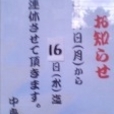 お知らせ
日(月)から
16日(水)迄
連休させて頂きます。
中